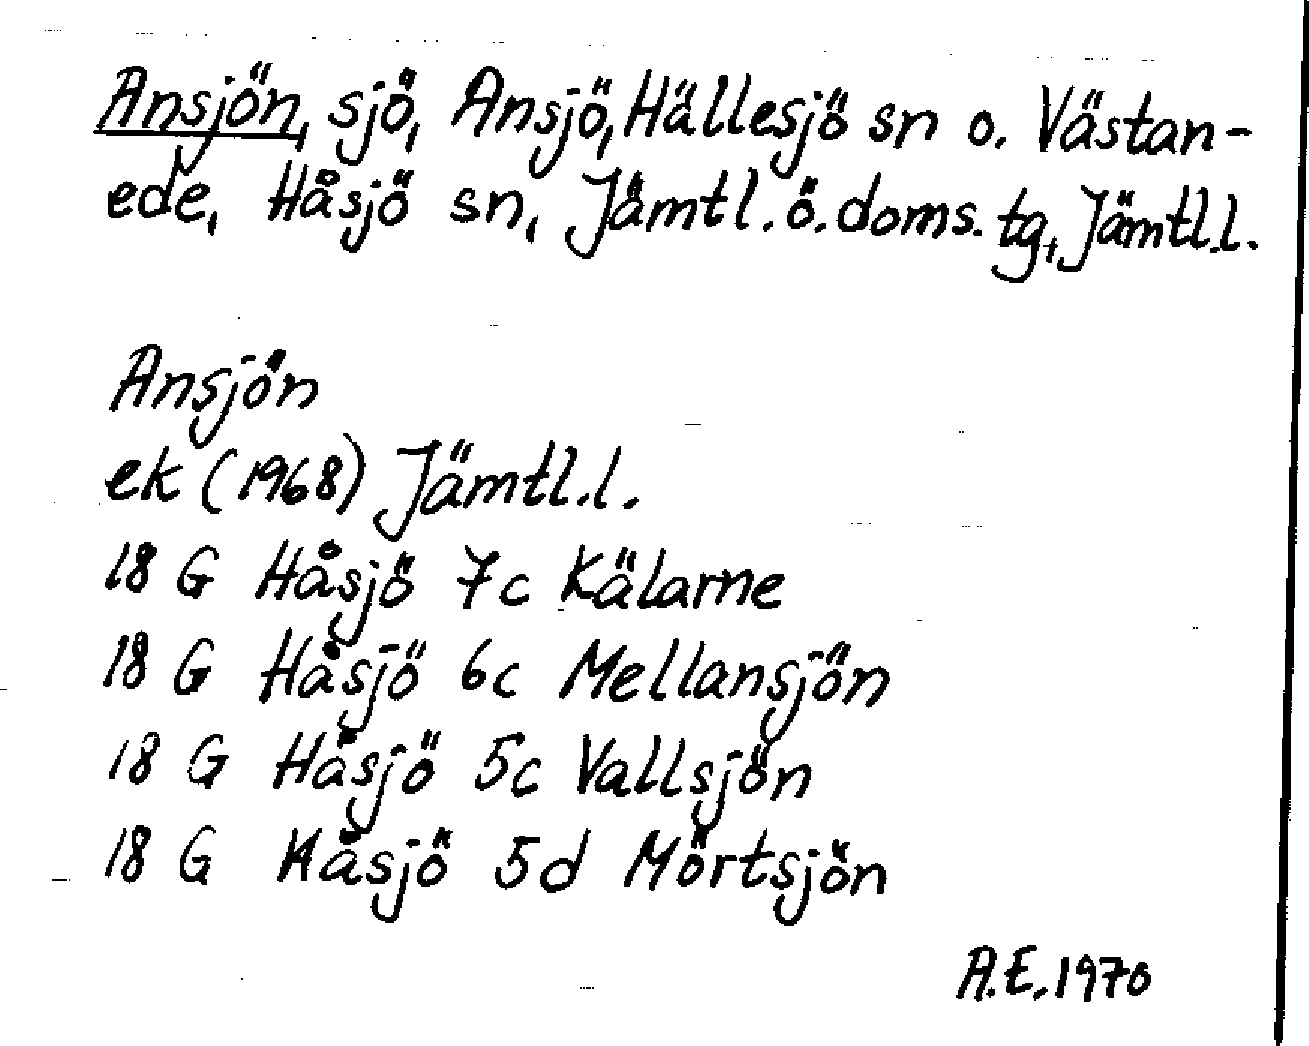 Ansjön, sjö, Ansjö, Hällesjö sn o. Västan-
ede, Håsjö sn, Jämtl. ö. doms. tg, Jämtl.l.
Ansjön
ek (1968) Jämtl.l.
18 G Håsjö 7c Kälarne
18 G Håsjö 6c Mellansjön
18 G Håsjö 5c Vallsjön
18 G Håsjö 5d Mörtsjön
A.E. 1970